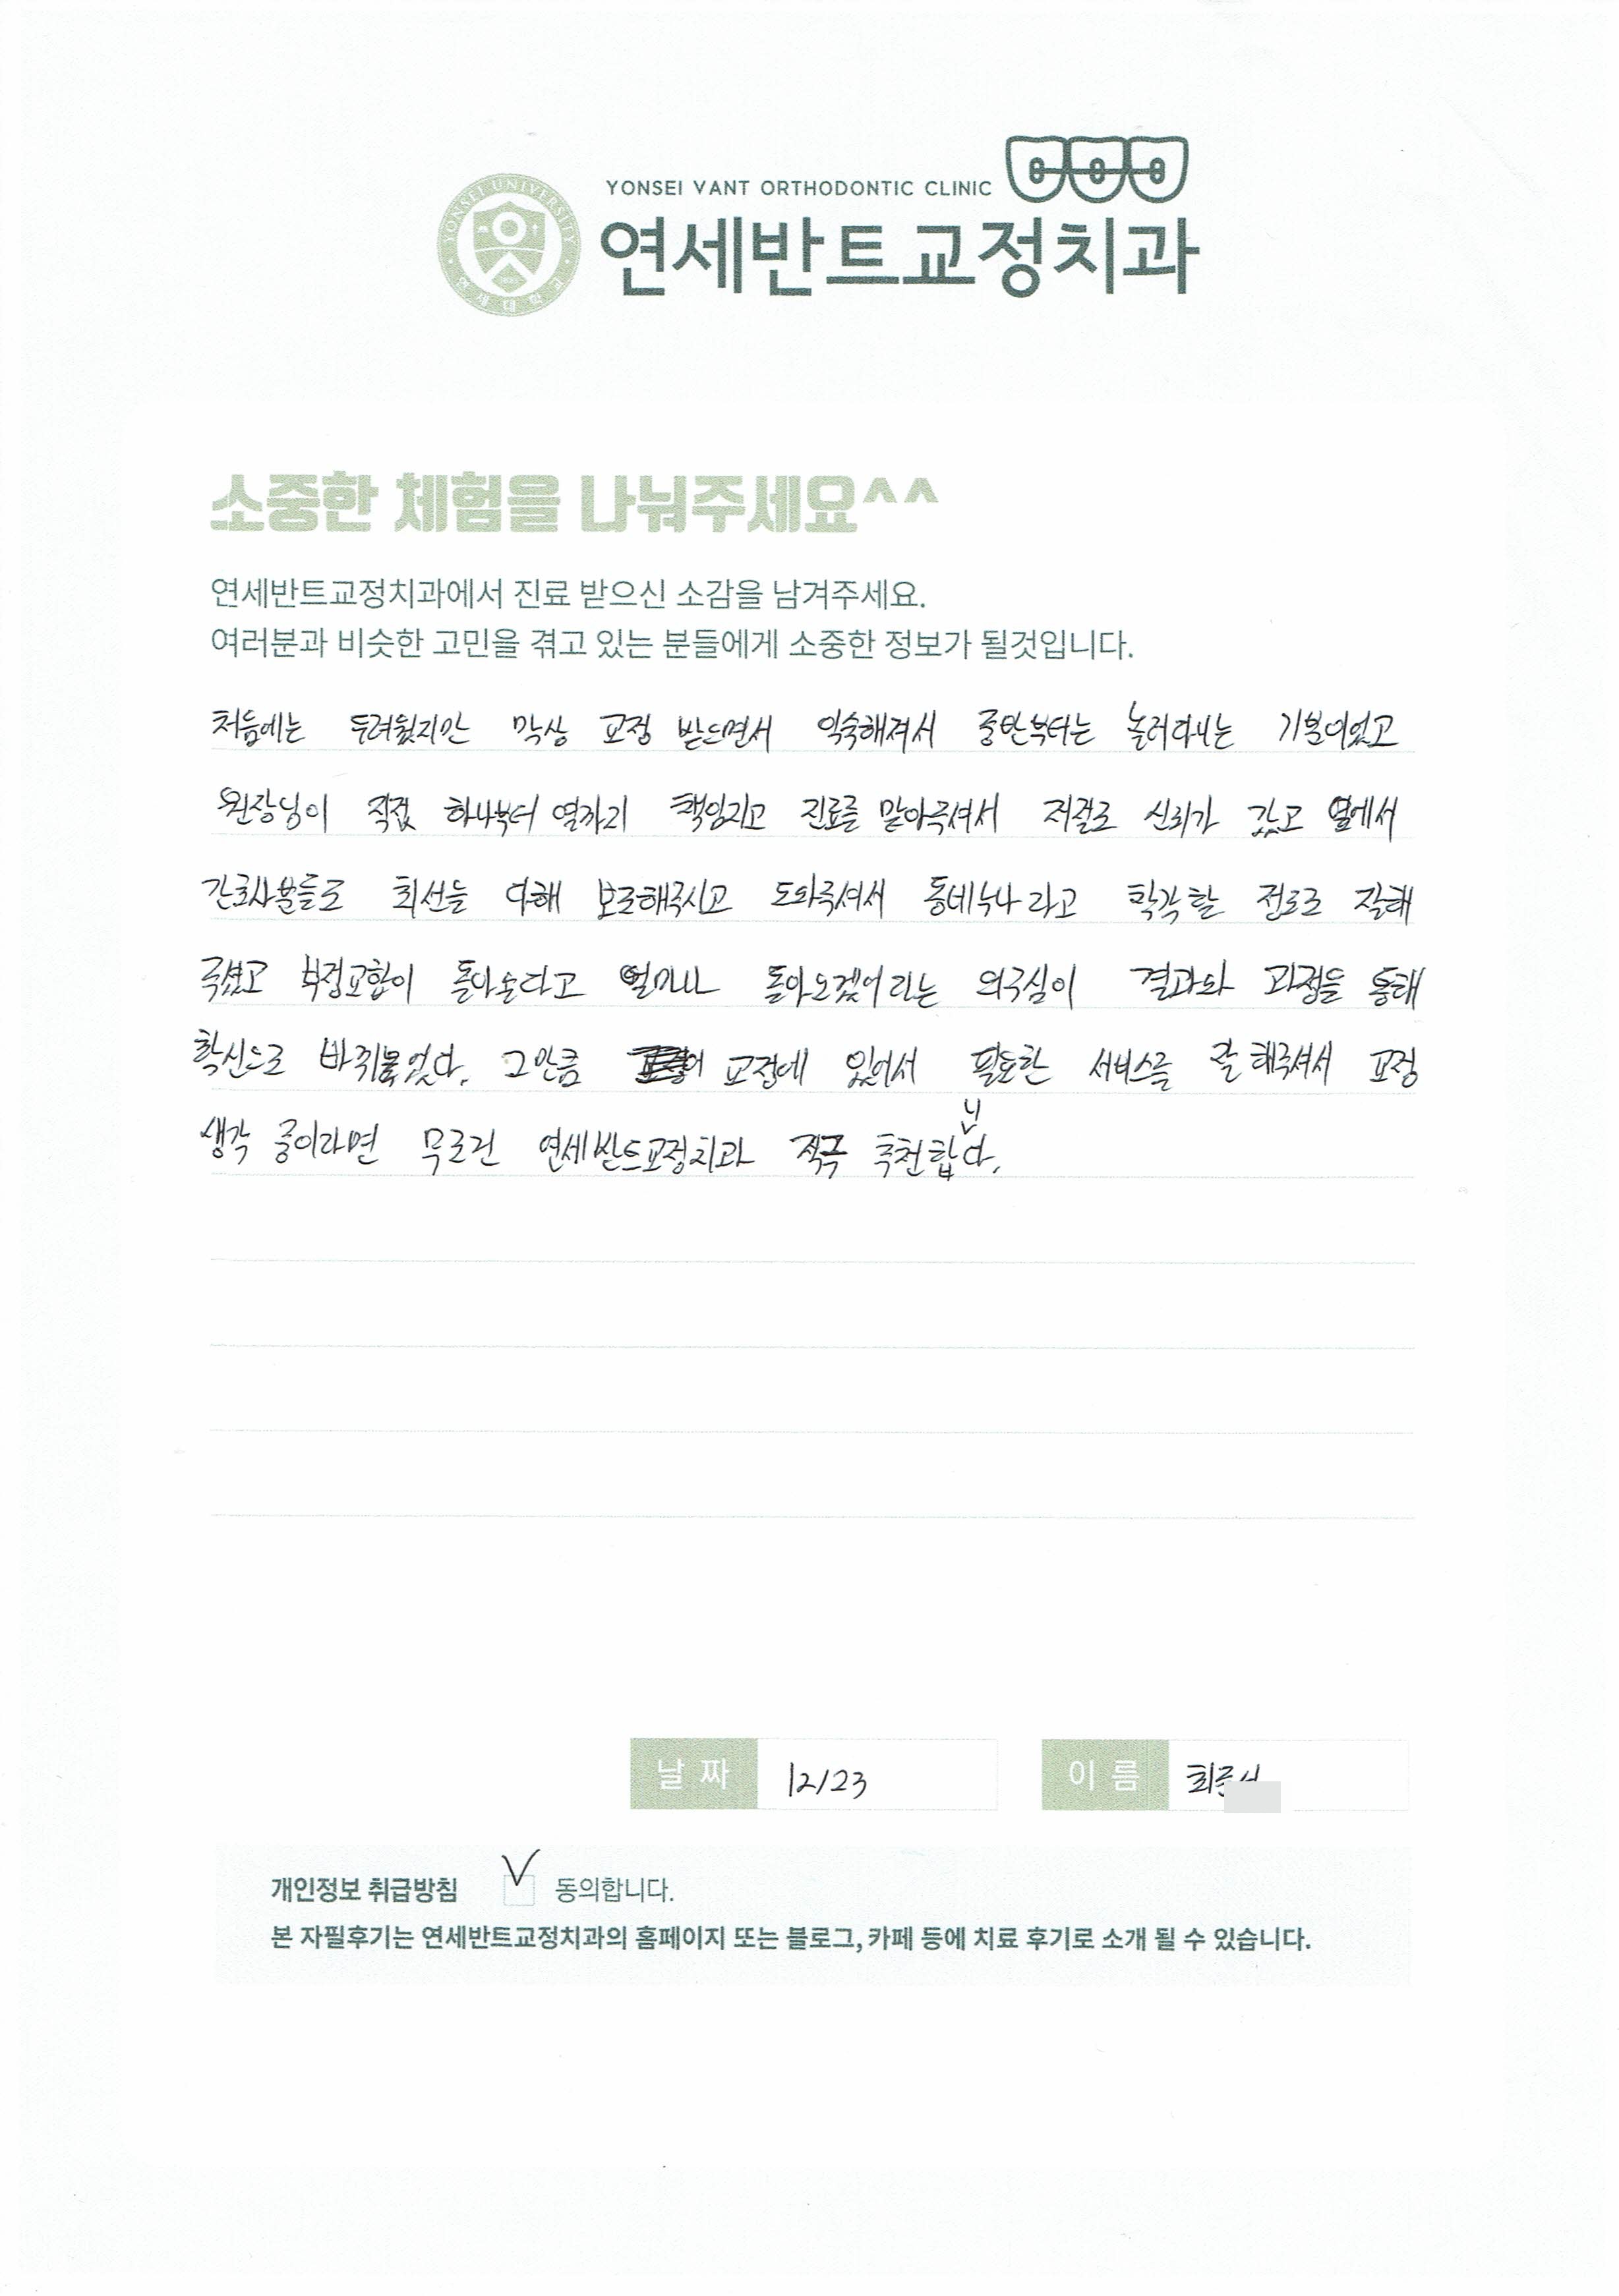 YONSEI UNIVERSITY
연세대학교
YONSEI VANT ORTHODONTIC CLINIC
연세반트교정치과
소중한 체험을 나눠주세요^^
연세반트교정치과에서 진료 받으신 소감을 남겨주세요.
여러분과 비슷한 고민을 겪고 있는 분들에게 소중한 정보가 될것입니다.
처음에는 두려웠지만 막상 교정 받으면서 익숙해져서 중반부터는 놀러다니는 기분이었고
원장님이 직접 하나부터 열까지 책임지고 진료를 맡아주셔서 저절로 신뢰가 갔고 옆에서
간호사분들도 최선을 다해 보조해주시고 도와주셔서 동네누나라고 착각할 정도로 잘해
주셨고 부정교합이 돌아온다고 얼마나 돌아오겠어라는 의구심이 결과와 과정을 통해
확신으로 바뀌었다. 그만큼 교정에 있어서 필요한 서비스를 잘 해주셔서 교정
생각 중이라면 무조건 연세반트교정치과 적극 추천합니다.
날짜 12/23 이름
개인정보 취급방침 동의합니다.
본 자필후기는 연세반트교정치과의 홈페이지 또는 블로그, 카페 등에 치료 후기로 소개 될 수 있습니다.